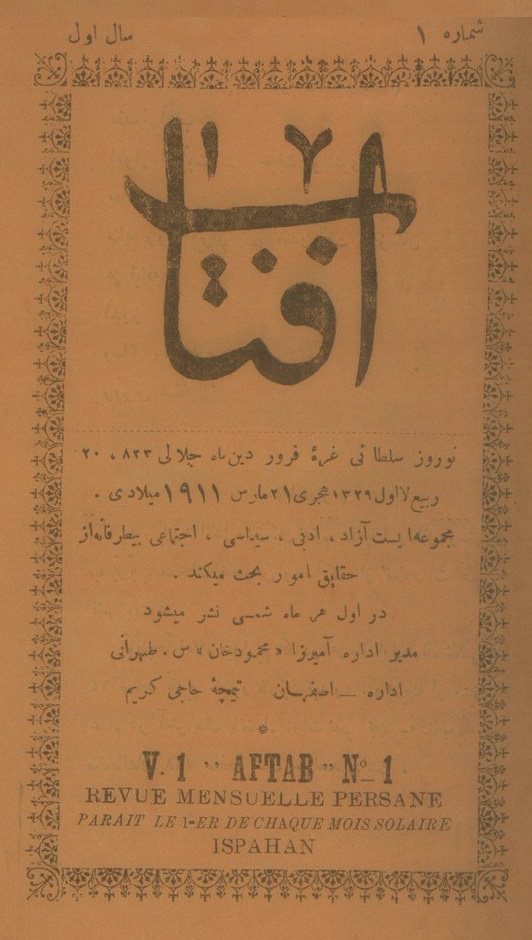 شماره ۱
سال اول
آفتاب
نوروز سلطانی غرهٔ فروردین ماه جلالی ۸۳۳ ، ۲۰
ربیع لااول ۱۳۲۹ هجری ۲۱ مارس ۱۹۱۱ میلادی .
مجموعه ایست آزاد ، ادبی ، سیاسی ، اجتماعی بیطرفانه از
حقایق امور بحث میکند .
در اول هر ماه شمسی نشر میشود
مدیر اداره آمیرزا «محمود خان» س . طهرانی
اداره — اصفهان تیمچهٔ حاجی کریم
*
V. 1 ,, AFTAB ,, No 1
REVUE MENSUELLE PERSANE
PARAIT LE 1-ER DE CHAQUE MOIS SOLAIRE
ISPAHAN